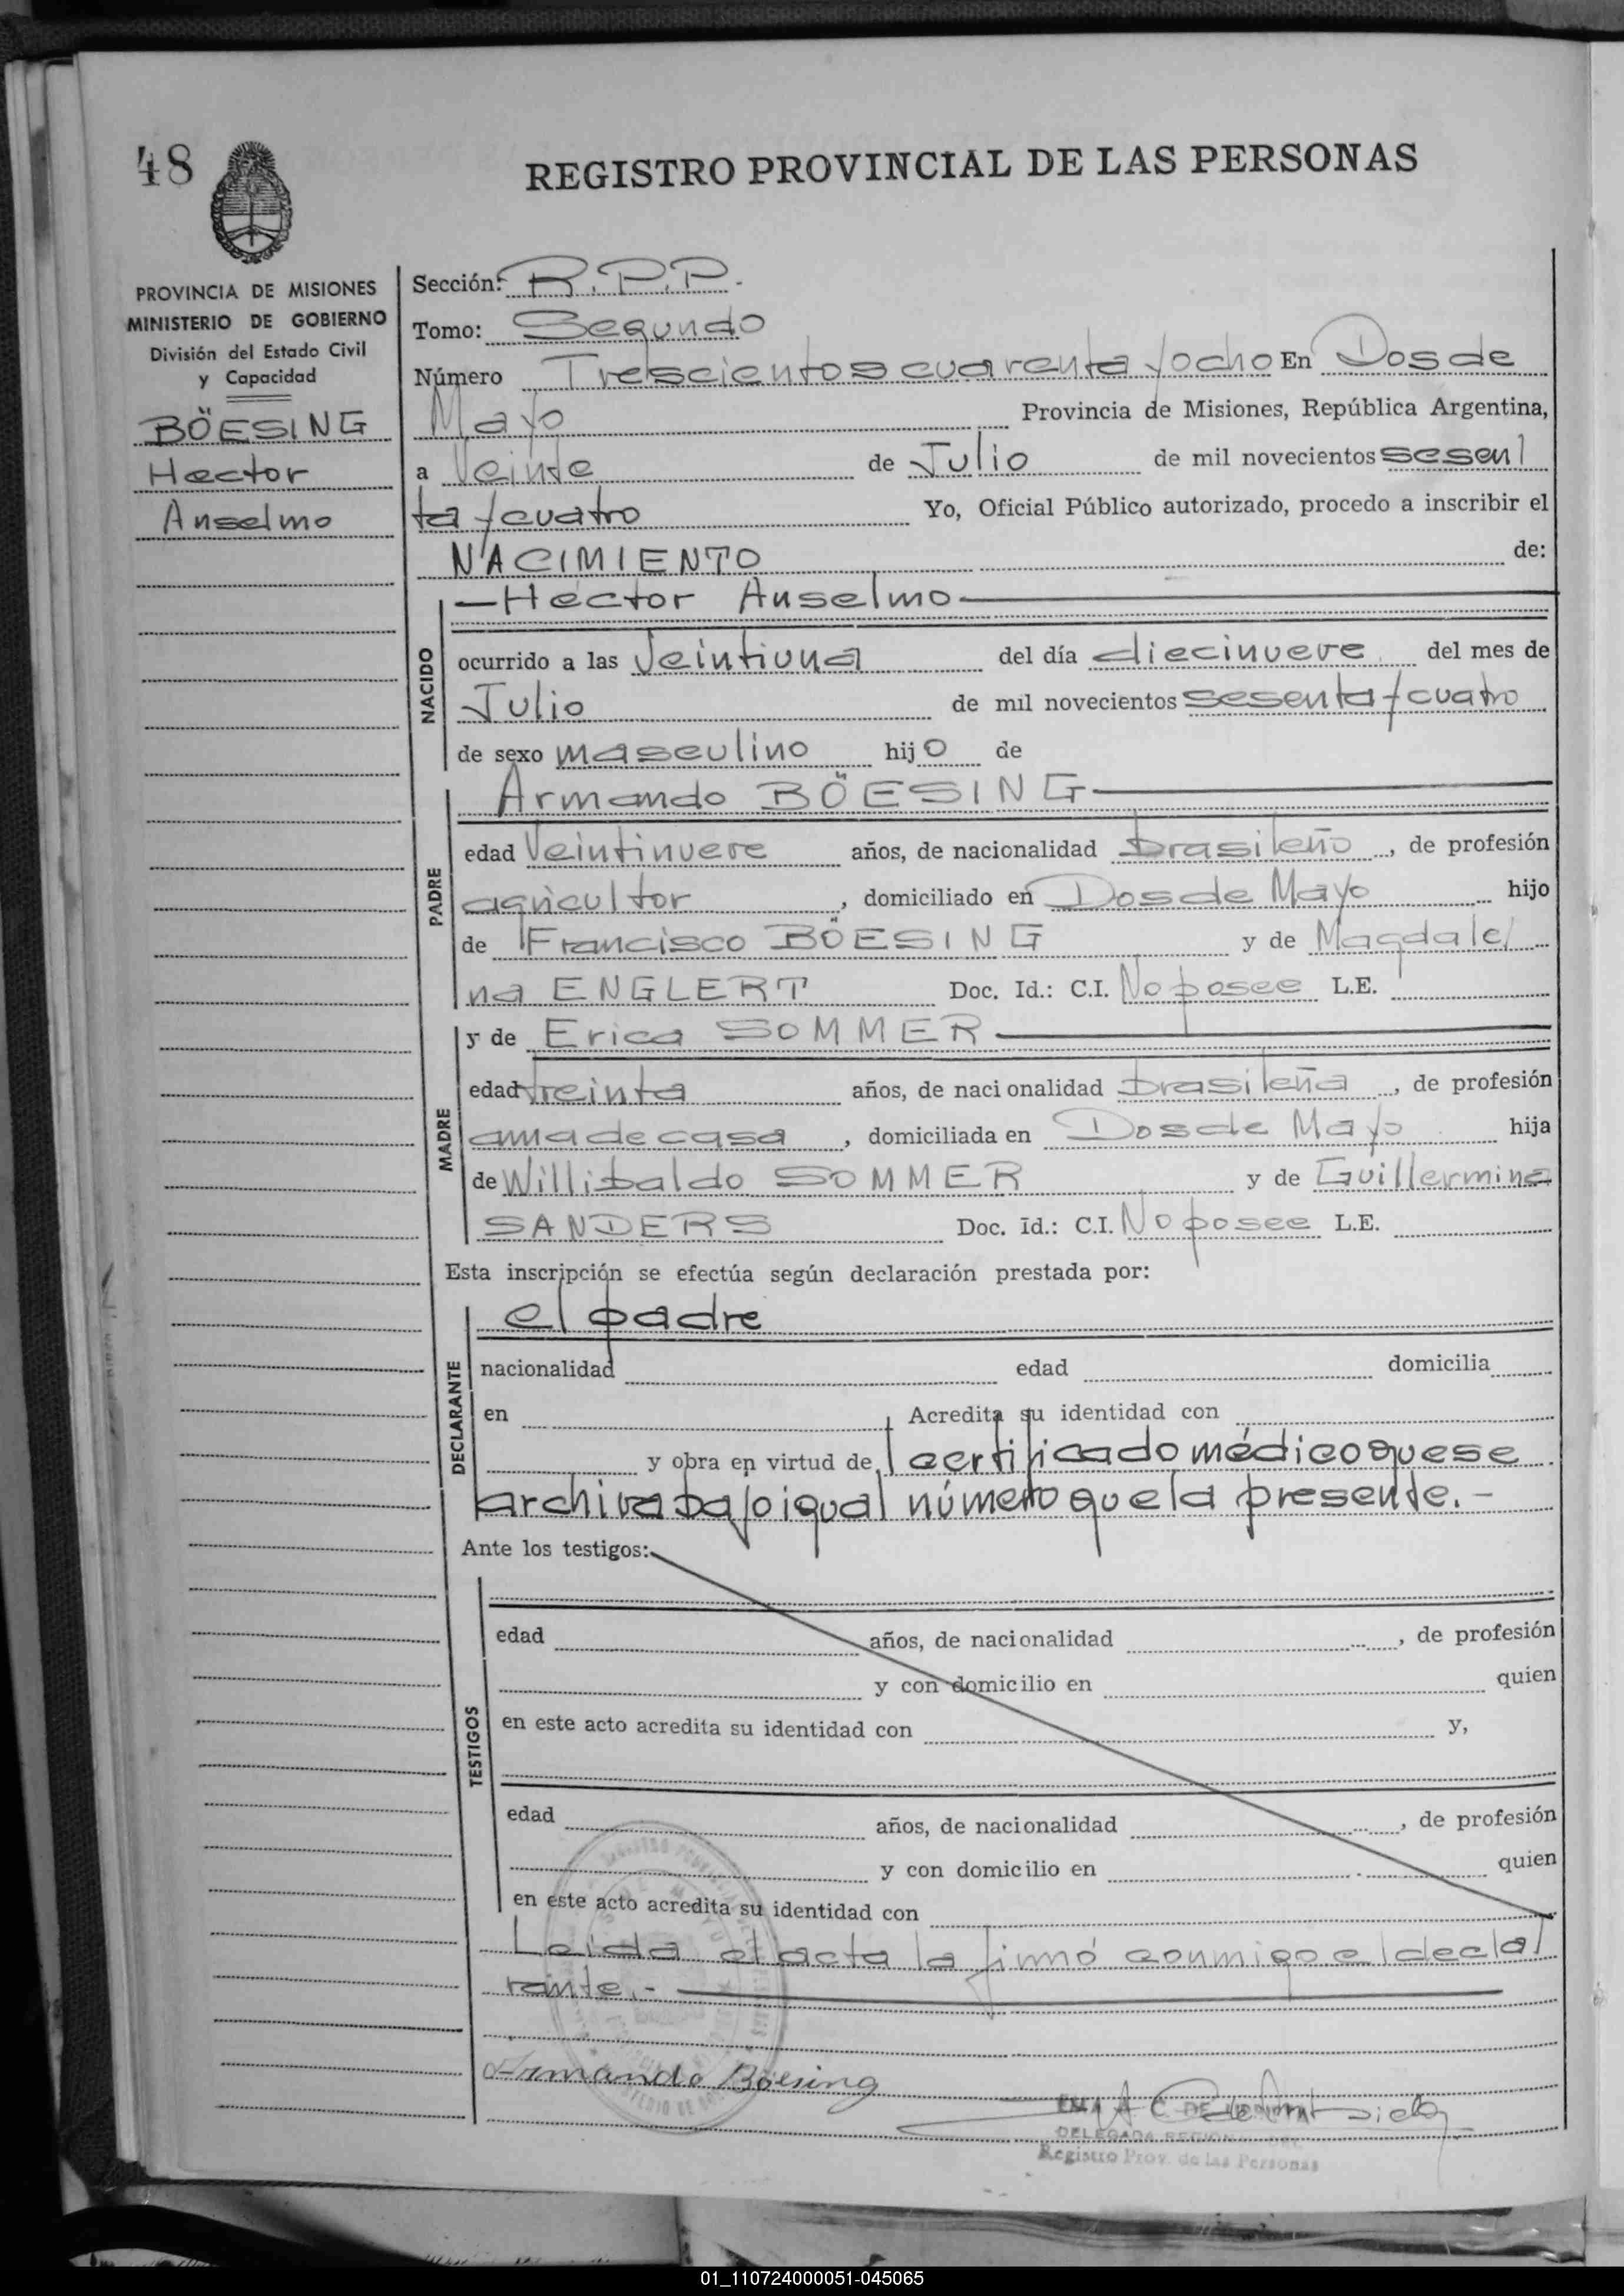 48
REGISTRO PROVINCIAL DE LAS PERSONAS
PROVINCIA DE MISIONES
MINISTERIO DE GOBIERNO
División del Estado Civil
y Capacidad
BÖESING
Hector
Anselmo
Sección: R.P.P.-
Tomo: Segundo
Número Trescientos cuarenta y ocho En Dos de
Mayo Provincia de Misiones, República Argentina,
a Veinte de Julio de mil novecientos sesen
ta y cuatro Yo, Oficial Público autorizado, procedo a inscribir el
NACIMIENTO de:
NACIDO
—Hector Anselmo—
ocurrido a las Veintiuna del día diecinueve del mes de
Julio de mil novecientos sesenta y cuatro
de sexo masculino hijo de
PADRE
Armando BÖESING
edad Veintinueve años, de nacionalidad brasileño, de profesión
agricultor, domiciliado en Dos de Mayo hijo
de Francisco BÖESING y de Magdale
na ENGLERT Doc. Id.: C.I. No posee L.E.
MADRE
y de Erica SOMMER
edad treinta años, de nacionalidad brasileña, de profesión
ama de casa, domiciliada en Dos de Mayo hija
de Willibaldo SOMMER y de Guillermina
SANDERS Doc. Id.: C.I. No posee L.E.
Esta inscripción se efectúa según declaración prestada por:
DECLARANTE
el padre
nacionalidad edad domicilia
en Acredita su identidad con
y obra en virtud de certificado médico que se
archiva bajo igual número que la presente.-
Ante los testigos:
TESTIGOS
edad años, de nacionalidad , de profesión
y con domicilio en quien
en este acto acredita su identidad con y,
edad años, de nacionalidad , de profesión
y con domicilio en quien
en este acto acredita su identidad con
Leida el acta la firmó conmigo el decla
rante.-
Armando Böesing
DELEGADA REGIONAL DEL
Registro Prov. de las Personas
01_110724000051-045065